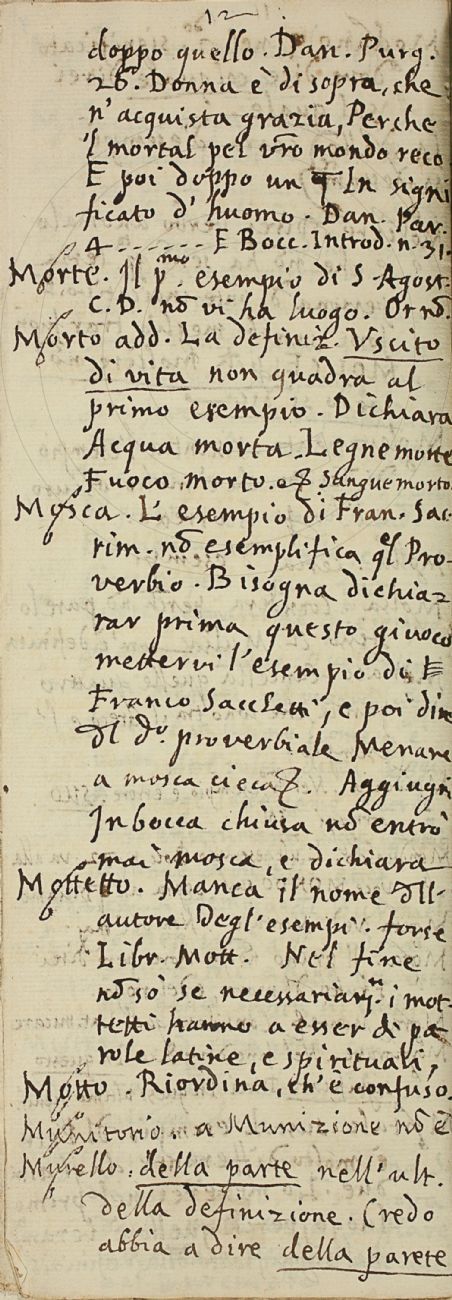 12
doppo quello. Dan. Purg.
26. Donna è di sopra, che
n'acquista grazia, Perche
'l mortal pel vro mondo reco.
E poi doppo un ¶ In signi
ficato d'huomo. Dan. Par.
4 ------ E Bocc. Introd. n. 31.
Morte. Il pmo. esempio di S Agost.
C. D. nõ vi ha luogo. Or nõ.
Morto add. La definiz. Vscito
di vita non quadra al
primo esempio. Dichiara
Acqua morta. Legne morte
Fuoco morto. e Sangue morto.
Mosca. L'esempio di Fran. Sac-
rim. nõ esemplifica ql Pro-
verbio. Bisogna dichia-
rar prima questo giuoco
mettervi l'esempio di
Franco Sacchetti, e poi dire
dl do. proverbiale Menare
a mosca cieca. Aggiugni
In bocca chiusa nõ entrò
mai mosca, e dichiara
Mottetto. Manca il nome dll'
autore degl'esempi. forse
Libr. Mott. Nel fine
nõ so se necessariam. i mot-
tetti hanno a esser di pa
role latine, e spirituali,
Motto. Riordina, ch'è confuso.
Munitorio. a Munizione nõ è
Murello. della parte nell'ult.
della definizione. Credo
abbia a dire della parete